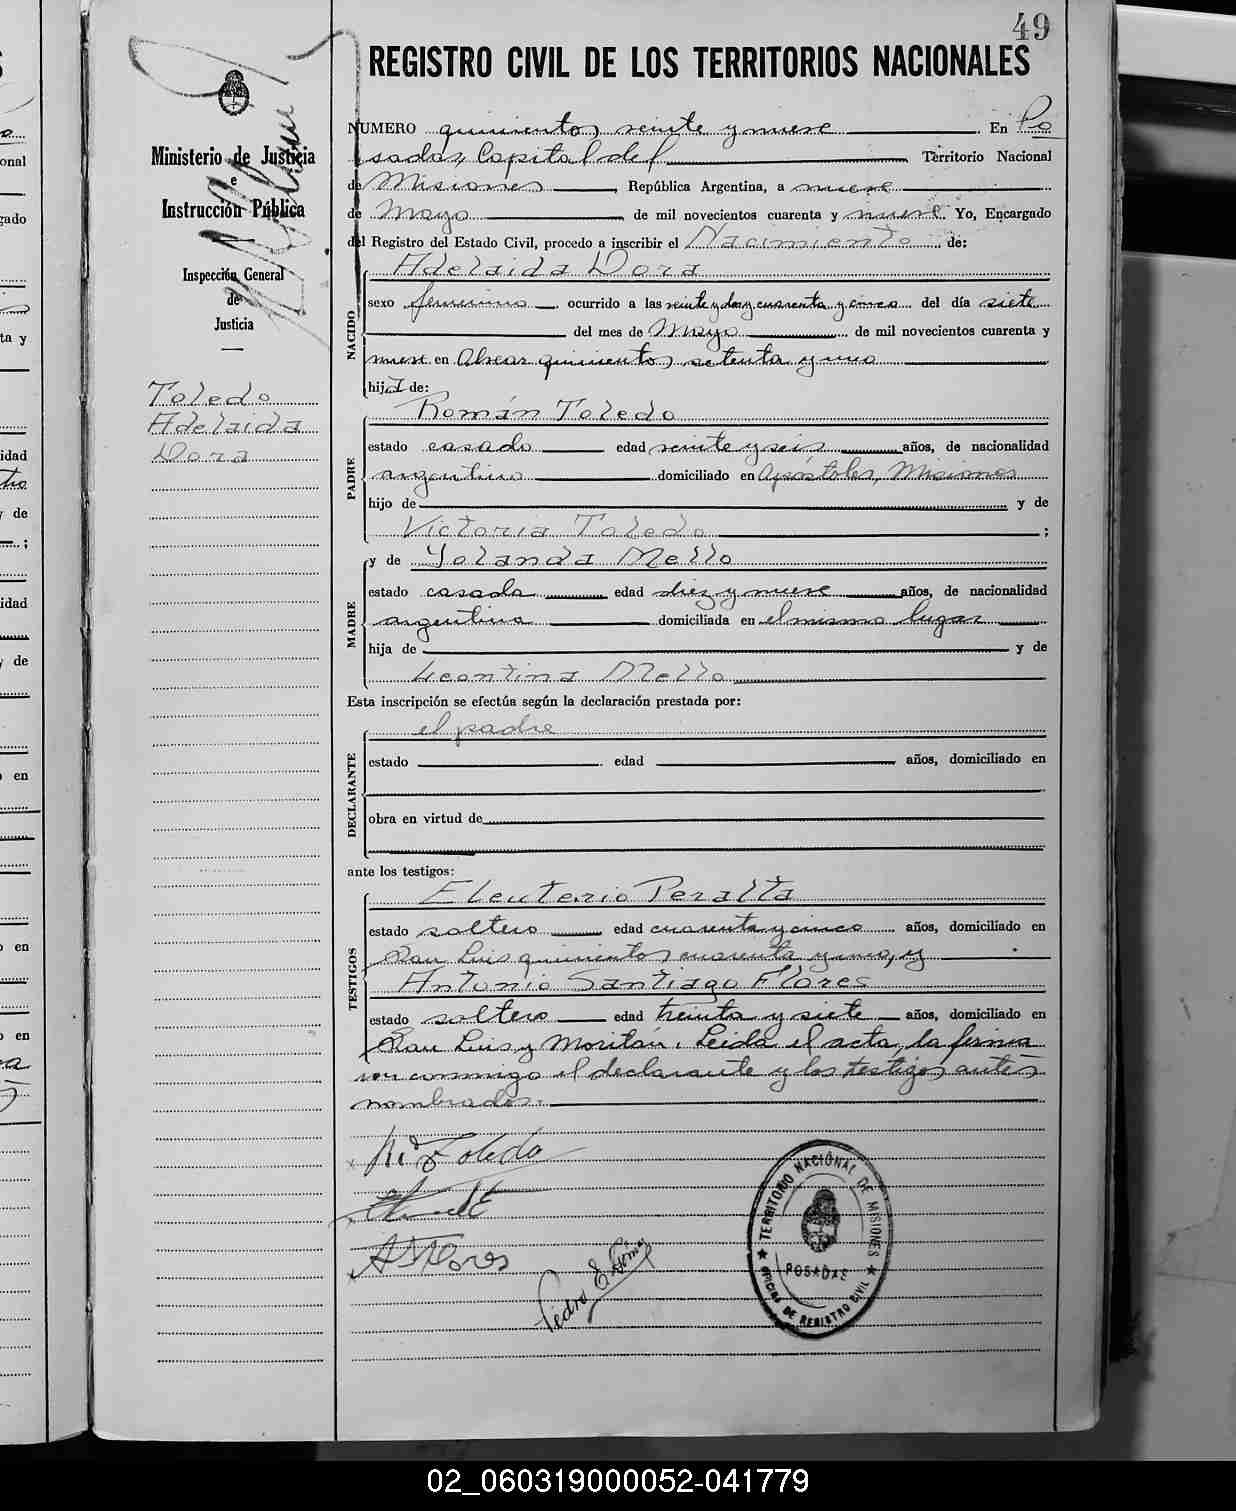 49
REGISTRO CIVIL DE LOS TERRITORIOS NACIONALES
Ministerio de Justicia
e
Instrucción Pública
Inspección General
de
Justicia
Toledo
Adelaida
Dora
NUMERO quinientos veinte y nueve En Po
sadas, Capital del Territorio Nacional
de Misiones, República Argentina, a nueve
de Mayo de mil novecientos cuarenta y nueve. Yo, Encargado
del Registro del Estado Civil, procedo a inscribir el Nacimiento de:
Adelaida Dora
NACIDO
sexo femenino ocurrido a las veinte y dos y cuarenta y cinco del día siete
del mes de Mayo de mil novecientos cuarenta y
nueve en Alvear quinientos setenta y uno
hija de:
PADRE
Román Toledo
estado casado edad veinte y seis años, de nacionalidad
argentino domiciliado en Apóstoles, Misiones
hijo de y de
Victoria Toledo ;
MADRE
y de Yolanda Mello
estado casada edad diez y nueve años, de nacionalidad
argentina domiciliada en el mismo lugar
hija de y de
Leontina Mello
Esta inscripción se efectúa según la declaración prestada por:
DECLARANTE
el padre
estado edad años, domiciliado en
obra en virtud de
ante los testigos:
TESTIGOS
Eleuterio Peralta
estado soltero edad cuarenta y cinco años, domiciliado en
San Luis quinientos cuarenta y uno, y
Antonio Santiago Flores
estado soltero edad treinta y siete años, domiciliado en
San Luis y Moritán. Leida el acta, la firman
con conmigo el declarante y los testigos antes
nombrados.
Rn Toledo
A S Flores
Pedro E.
TERRITORIO NACIONAL DE MISIONES
POSADAS
OFICINA DE REGISTRO CIVIL
02_060319000052-041779